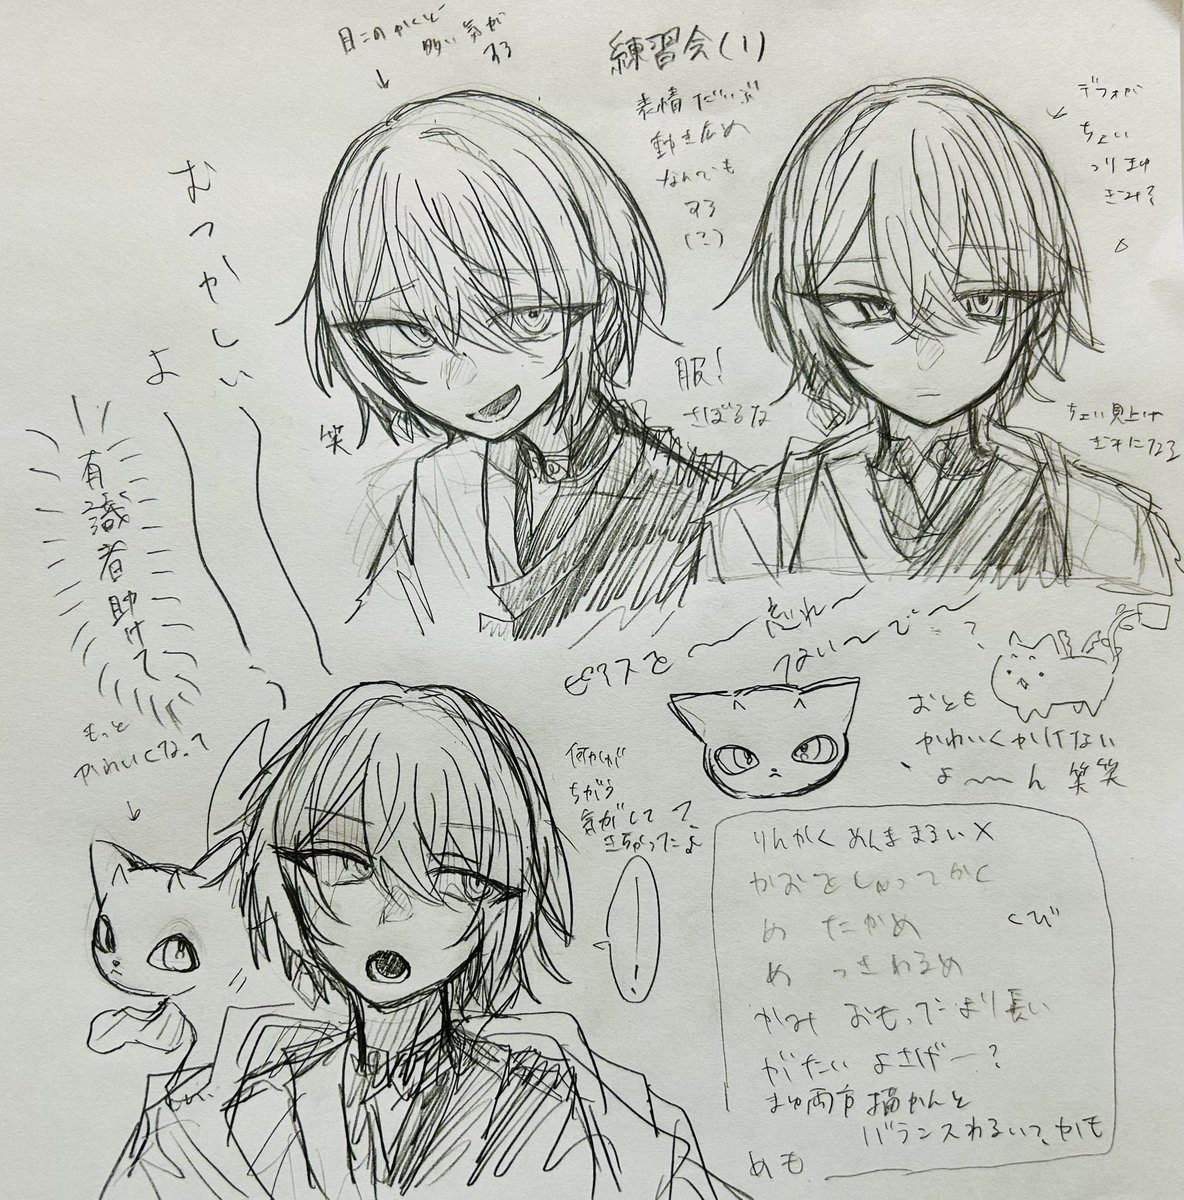 練習会(1)
目この かくど
多い気が
する
表情だいぶ
動き広め
なんでも
する
(?)
デフォが
ちょい
つりまゆ
ぎみ?
むつかしい
よ
笑
服!
さぼるな
ちょい見上げ
ぎみになる
有識者助けて
ピアスを〜忘れ〜
ない〜で〜?
もっと
かわいくなって
おとも
かわいくかけない
よ〜〜ん笑笑
何かが
ちがう
気がして
きちゃったよ
!
りんかく めんま まるい×
かおをしってかく
め たかめ くび
め つきわるめ
かみ おもったより長い
がたい よさげー?
まゆ両方描かんと
バランスわるい?かも
めも